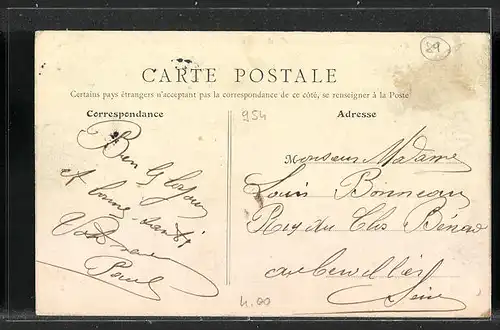 89
CARTE POSTALE
Certains pays étrangers n'acceptent pas la correspondance de ce côté, se renseigner à la Poste
Correspondance
Bien
et bonne santé
Paul
954
4.00
Adresse
Monsieur Madame
Louis Bonneau
du Clos Bénard
Aubervilliers
Seine